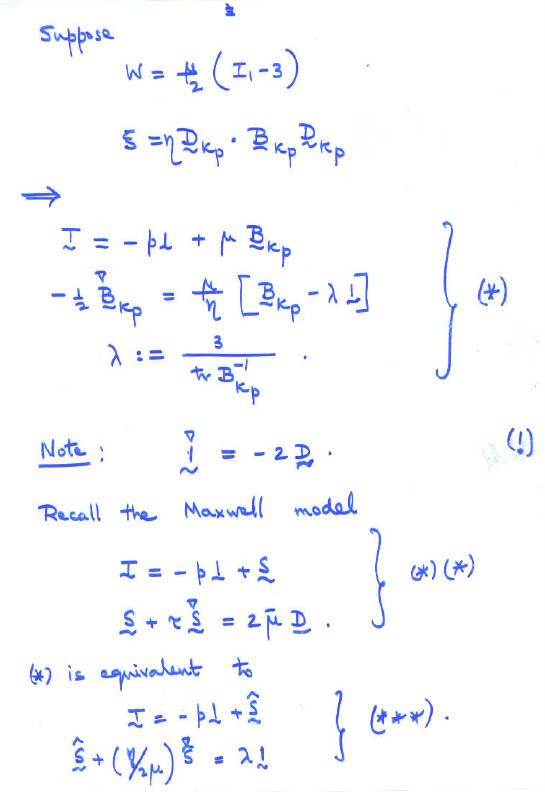 Suppose
W = μ/2 (I₁ - 3)
ξ = η D̰_κp · B̰_κp D̰_κp
⇒
T̰ = - p1̰ + μ B̰_κp
- ½ B̰^∇_κp = μ/η [B̰_κp - λ 1̰]
λ := 3 / tr B̰⁻¹_κp .
(*)
Note : 1̰^∇ = - 2 D̰ . (!)
Recall the Maxwell model
T̰ = - p1̰ + S̰
S̰ + τ S̰^∇ = 2 μ̄ D̰ .
(*)(*)
(*) is equivalent to
T̰ = - p1̰ + Ŝ̰
Ŝ̰ + (η/2μ) Ŝ̰^∇ = λ 1̰
(***) .